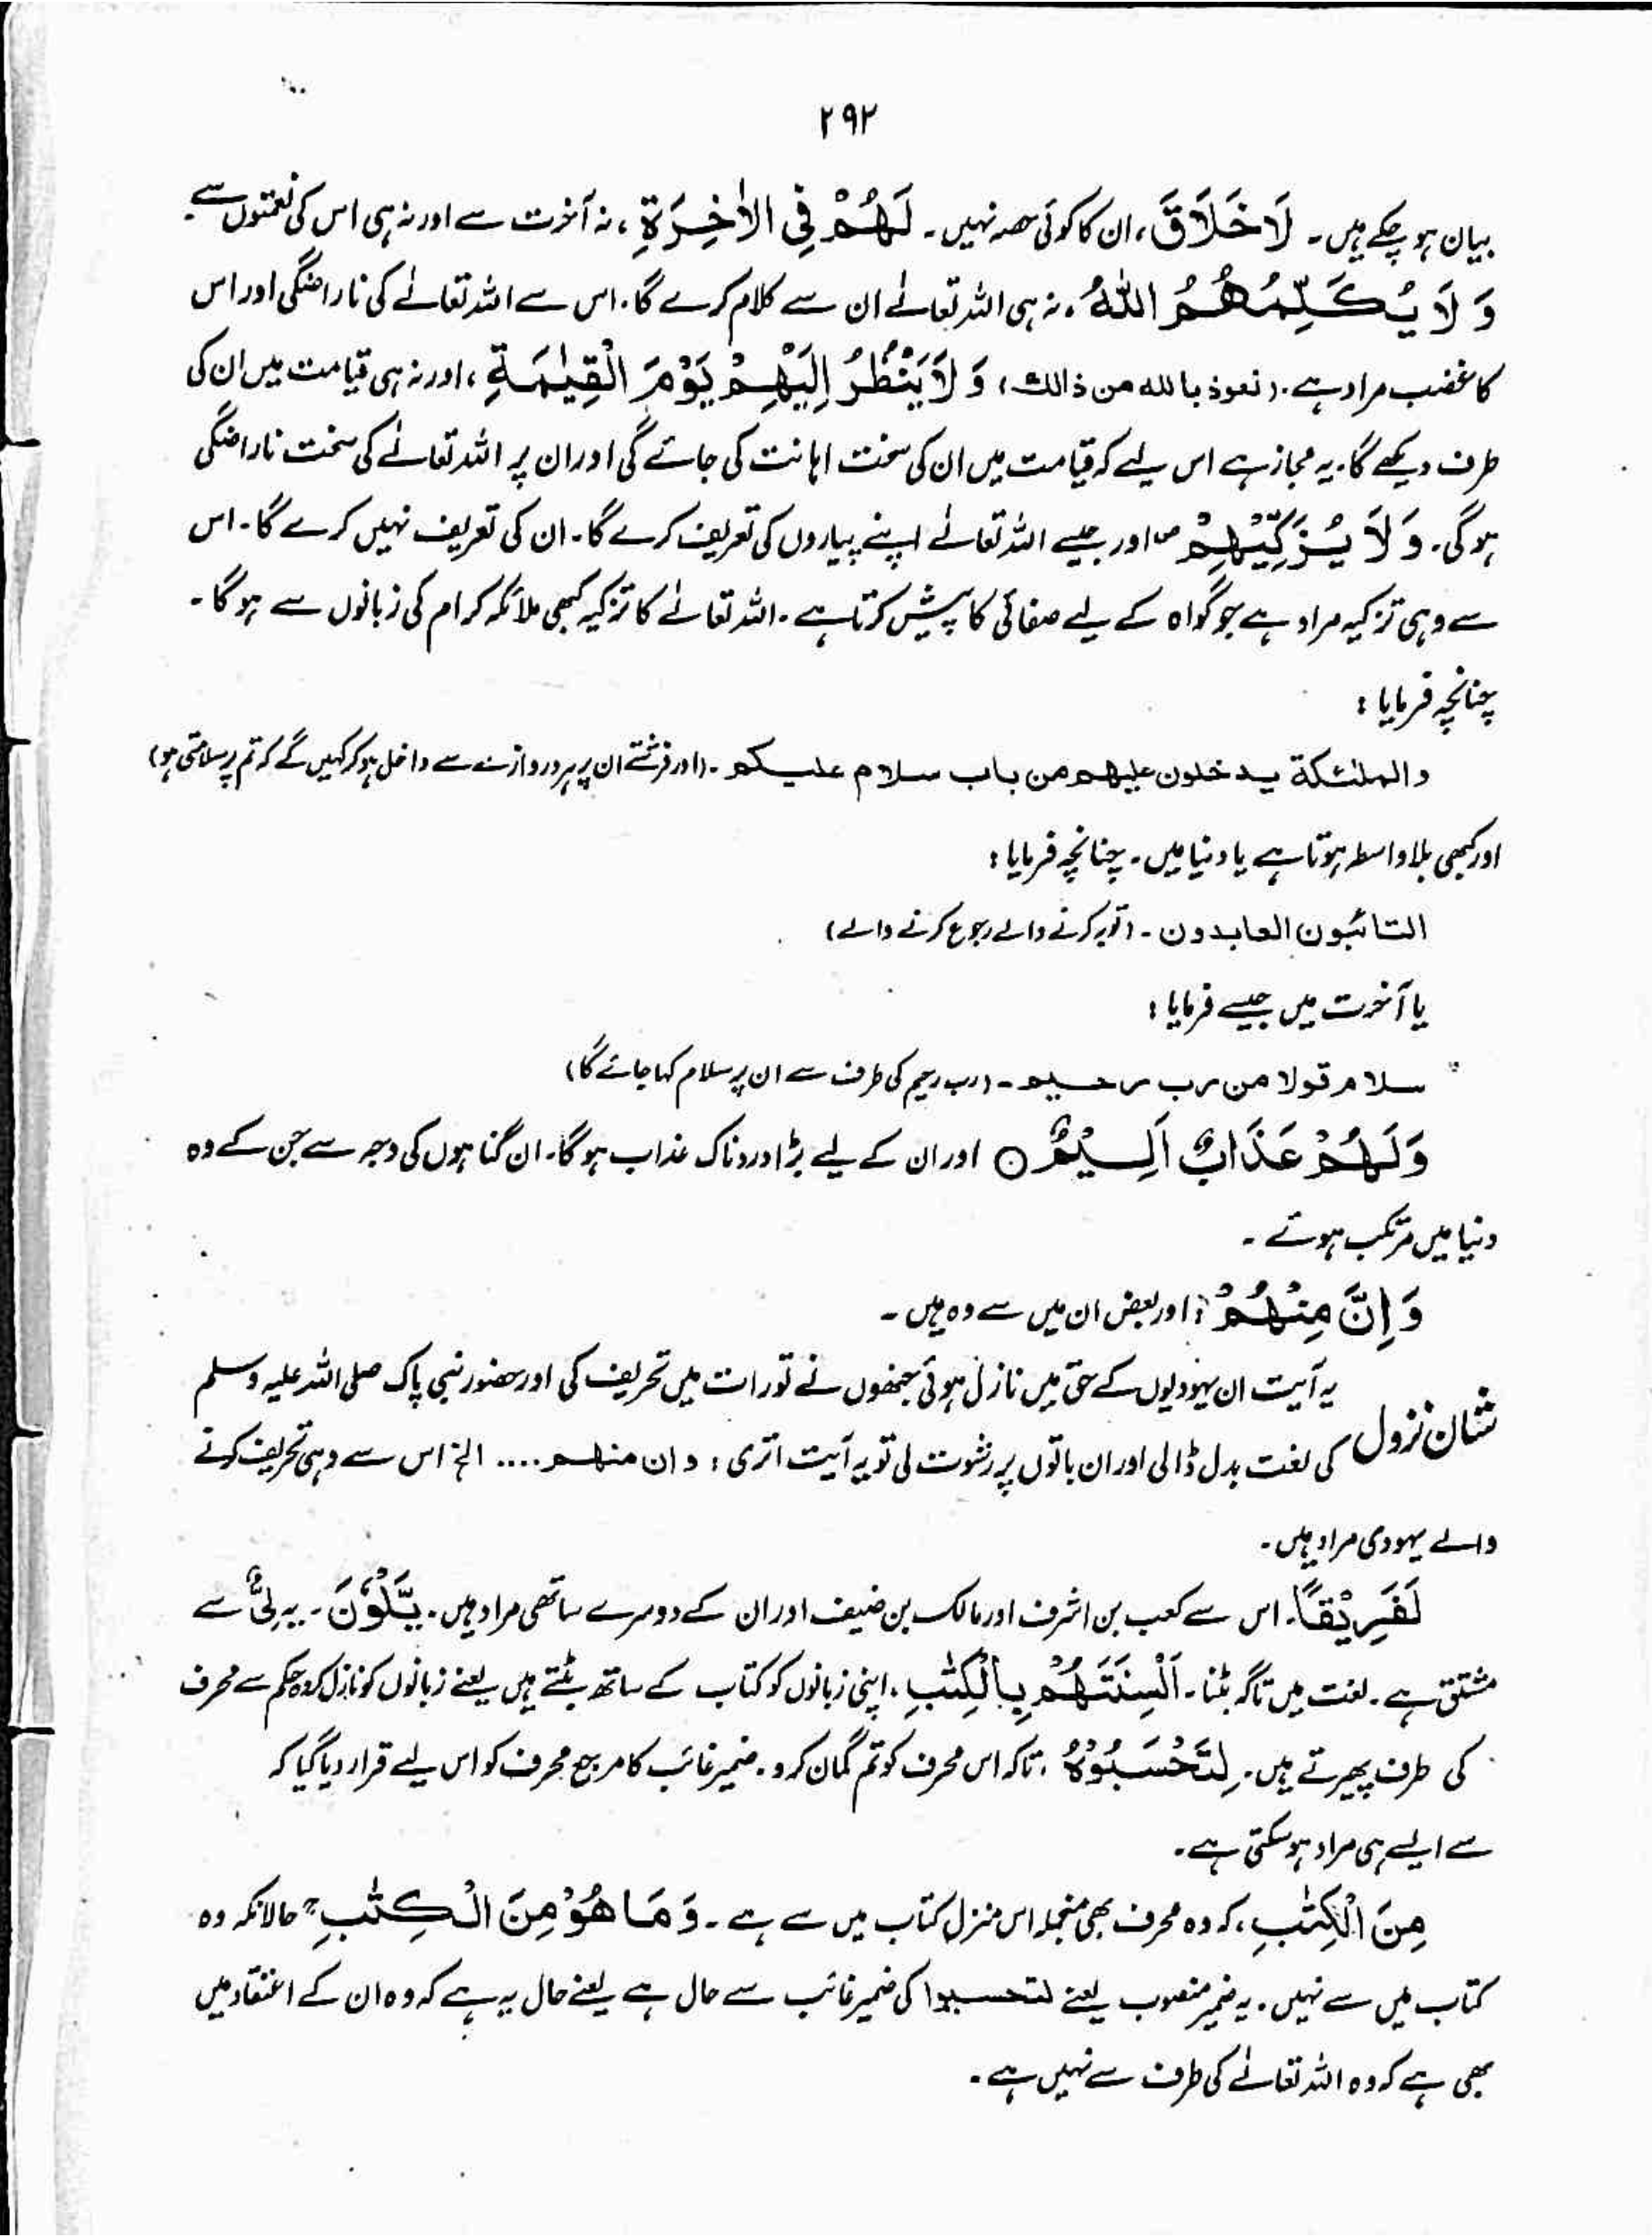 ۲۹۲
بیان ہو چکے ہیں۔ لَا خَلَاقَ، ان کا کوئی حصہ نہیں۔ لَهُمْ فِي الْاٰخِرَةِ، نہ آخرت سے اور نہ ہی اس کی نعمتوں سے۔
وَ لَا يُكَلِّمُهُمُ اللّٰهُ، نہ ہی اللہ تعالےٰ ان سے کلام کرے گا۔ اس سے اللہ تعالےٰ کی ناراضگی اور اس
کا غضب مراد ہے۔ (نعوذ باللہ من ذالك) وَ لَا يَنْظُرُ اِلَيْهِمْ يَوْمَ الْقِيٰمَةِ، اور نہ ہی قیامت میں ان کی
طرف دیکھے گا۔ یہ مجاز ہے اس لیے کہ قیامت میں ان کی سخت اہانت کی جائے گی اور ان پر اللہ تعالےٰ کی سخت ناراضگی
ہوگی۔ وَ لَا يُزَكِّيْهِمْ ص اور جیسے اللہ تعالےٰ اپنے پیاروں کی تعریف کرے گا۔ ان کی تعریف نہیں کرے گا۔ اس
سے وہی تزکیہ مراد ہے جو گواہ کے لیے صفائی کا پیش کرتا ہے۔ اللہ تعالےٰ کا تزکیہ کبھی ملائکہ کرام کی زبانوں سے ہوگا۔
چنانچہ فرمایا :
والملٰئکة یدخلون علیهم من باب سلام علیکم۔ (اور فرشتے ان پر ہر دروازے سے داخل ہو کر کہیں گے کہ تم پر سلامتی ہو)
اور کبھی بلا واسطہ ہوتا ہے یا دنیا میں۔ چنانچہ فرمایا :
التائبون العابدون۔ (توبہ کرنے والے رجوع کرنے والے)
یا آخرت میں جیسے فرمایا :
سلام قولا من رب رحیم۔ (رب رحیم کی طرف سے ان پر سلام کہا جائے گا)
وَلَهُمْ عَذَابٌ اَلِيْمٌ ○ اور ان کے لیے بڑا دردناک عذاب ہوگا۔ ان گناہوں کی وجہ سے جن کے وہ
دنیا میں مرتکب ہوئے۔
وَ اِنَّ مِنْهُمْ، اور بعض ان میں سے وہ ہیں۔
شان نزول یہ آیت ان یہودیوں کے حق میں نازل ہوئی جنھوں نے تورات میں تحریف کی اور حضور نبی پاک صلی اللہ علیہ وسلم
کی لغت بدل ڈالی اور ان باتوں پر رشوت لی تو یہ آیت اتری : وان منهم .... الخ اس سے وہی تحریف کرنے
والے یہودی مراد ہیں۔
لَفَرِيْقًا۔ اس سے کعب بن اشرف اور مالک بن ضیف اور ان کے دوسرے ساتھی مراد ہیں۔ يَّلْوٗنَ۔ یہ لیٌّ سے
مشتق ہے۔ لغت میں تاگہ بٹنا۔ اَلْسِنَتَهُمْ بِالْكِتٰبِ، اپنی زبانوں کو کتاب کے ساتھ بٹتے ہیں یعنے زبانوں کو نازل کردہ حکم سے محرف
کی طرف پھیرتے ہیں۔ لِتَحْسَبُوْهُ، تاکہ اس محرف کو تم گمان کرو۔ ضمیر غائب کا مرجع محرف کو اس لیے قرار دیا گیا کہ
سے ایسے ہی مراد ہوسکتی ہے۔
مِنَ الْكِتٰبِ، کہ وہ محرف بھی منجملہ اس منزل کتاب میں سے ہے۔ وَ مَا هُوَ مِنَ الْكِتٰبِ ج حالانکہ وہ
کتاب میں سے نہیں۔ یہ ضمیر منصوب یعنے لتحسبوا کی ضمیر غائب سے حال ہے یعنے حال یہ ہے کہ وہ ان کے اعتقاد میں
بھی ہے کہ وہ اللہ تعالےٰ کی طرف سے نہیں ہے۔